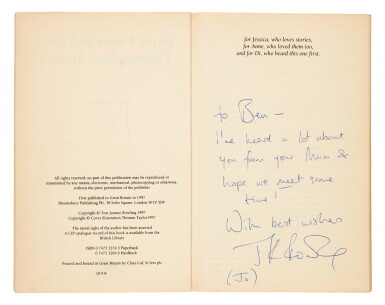 All rights reserved; no part of this publication may be reproduced or
transmitted by any means, electronic, mechanical, photocopying or otherwise,
without the prior permission of the publisher
First published in Great Britain in 1997
Bloomsbury Publishing Plc, 38 Soho Square, London W1V 5DF
Copyright © Text Joanne Rowling 1997
Copyright © Cover Illustration Thomas Taylor 1997
The moral right of the author has been asserted
A CIP catalogue record of this book is available from the
British Library
ISBN 0 7475 3274 5 Paperback
ISBN 0 7475 3269 9 Hardback
Printed and bound in Great Britain by Clays Ltd, St Ives plc
for Jessica, who loves stories,
for Anne, who loved them too,
and for Di, who heard this one first.
to Ben –
I've heard a lot about
you from your Mum &
hope we meet some
time!
With best wishes
J K Rowling
(Jo)